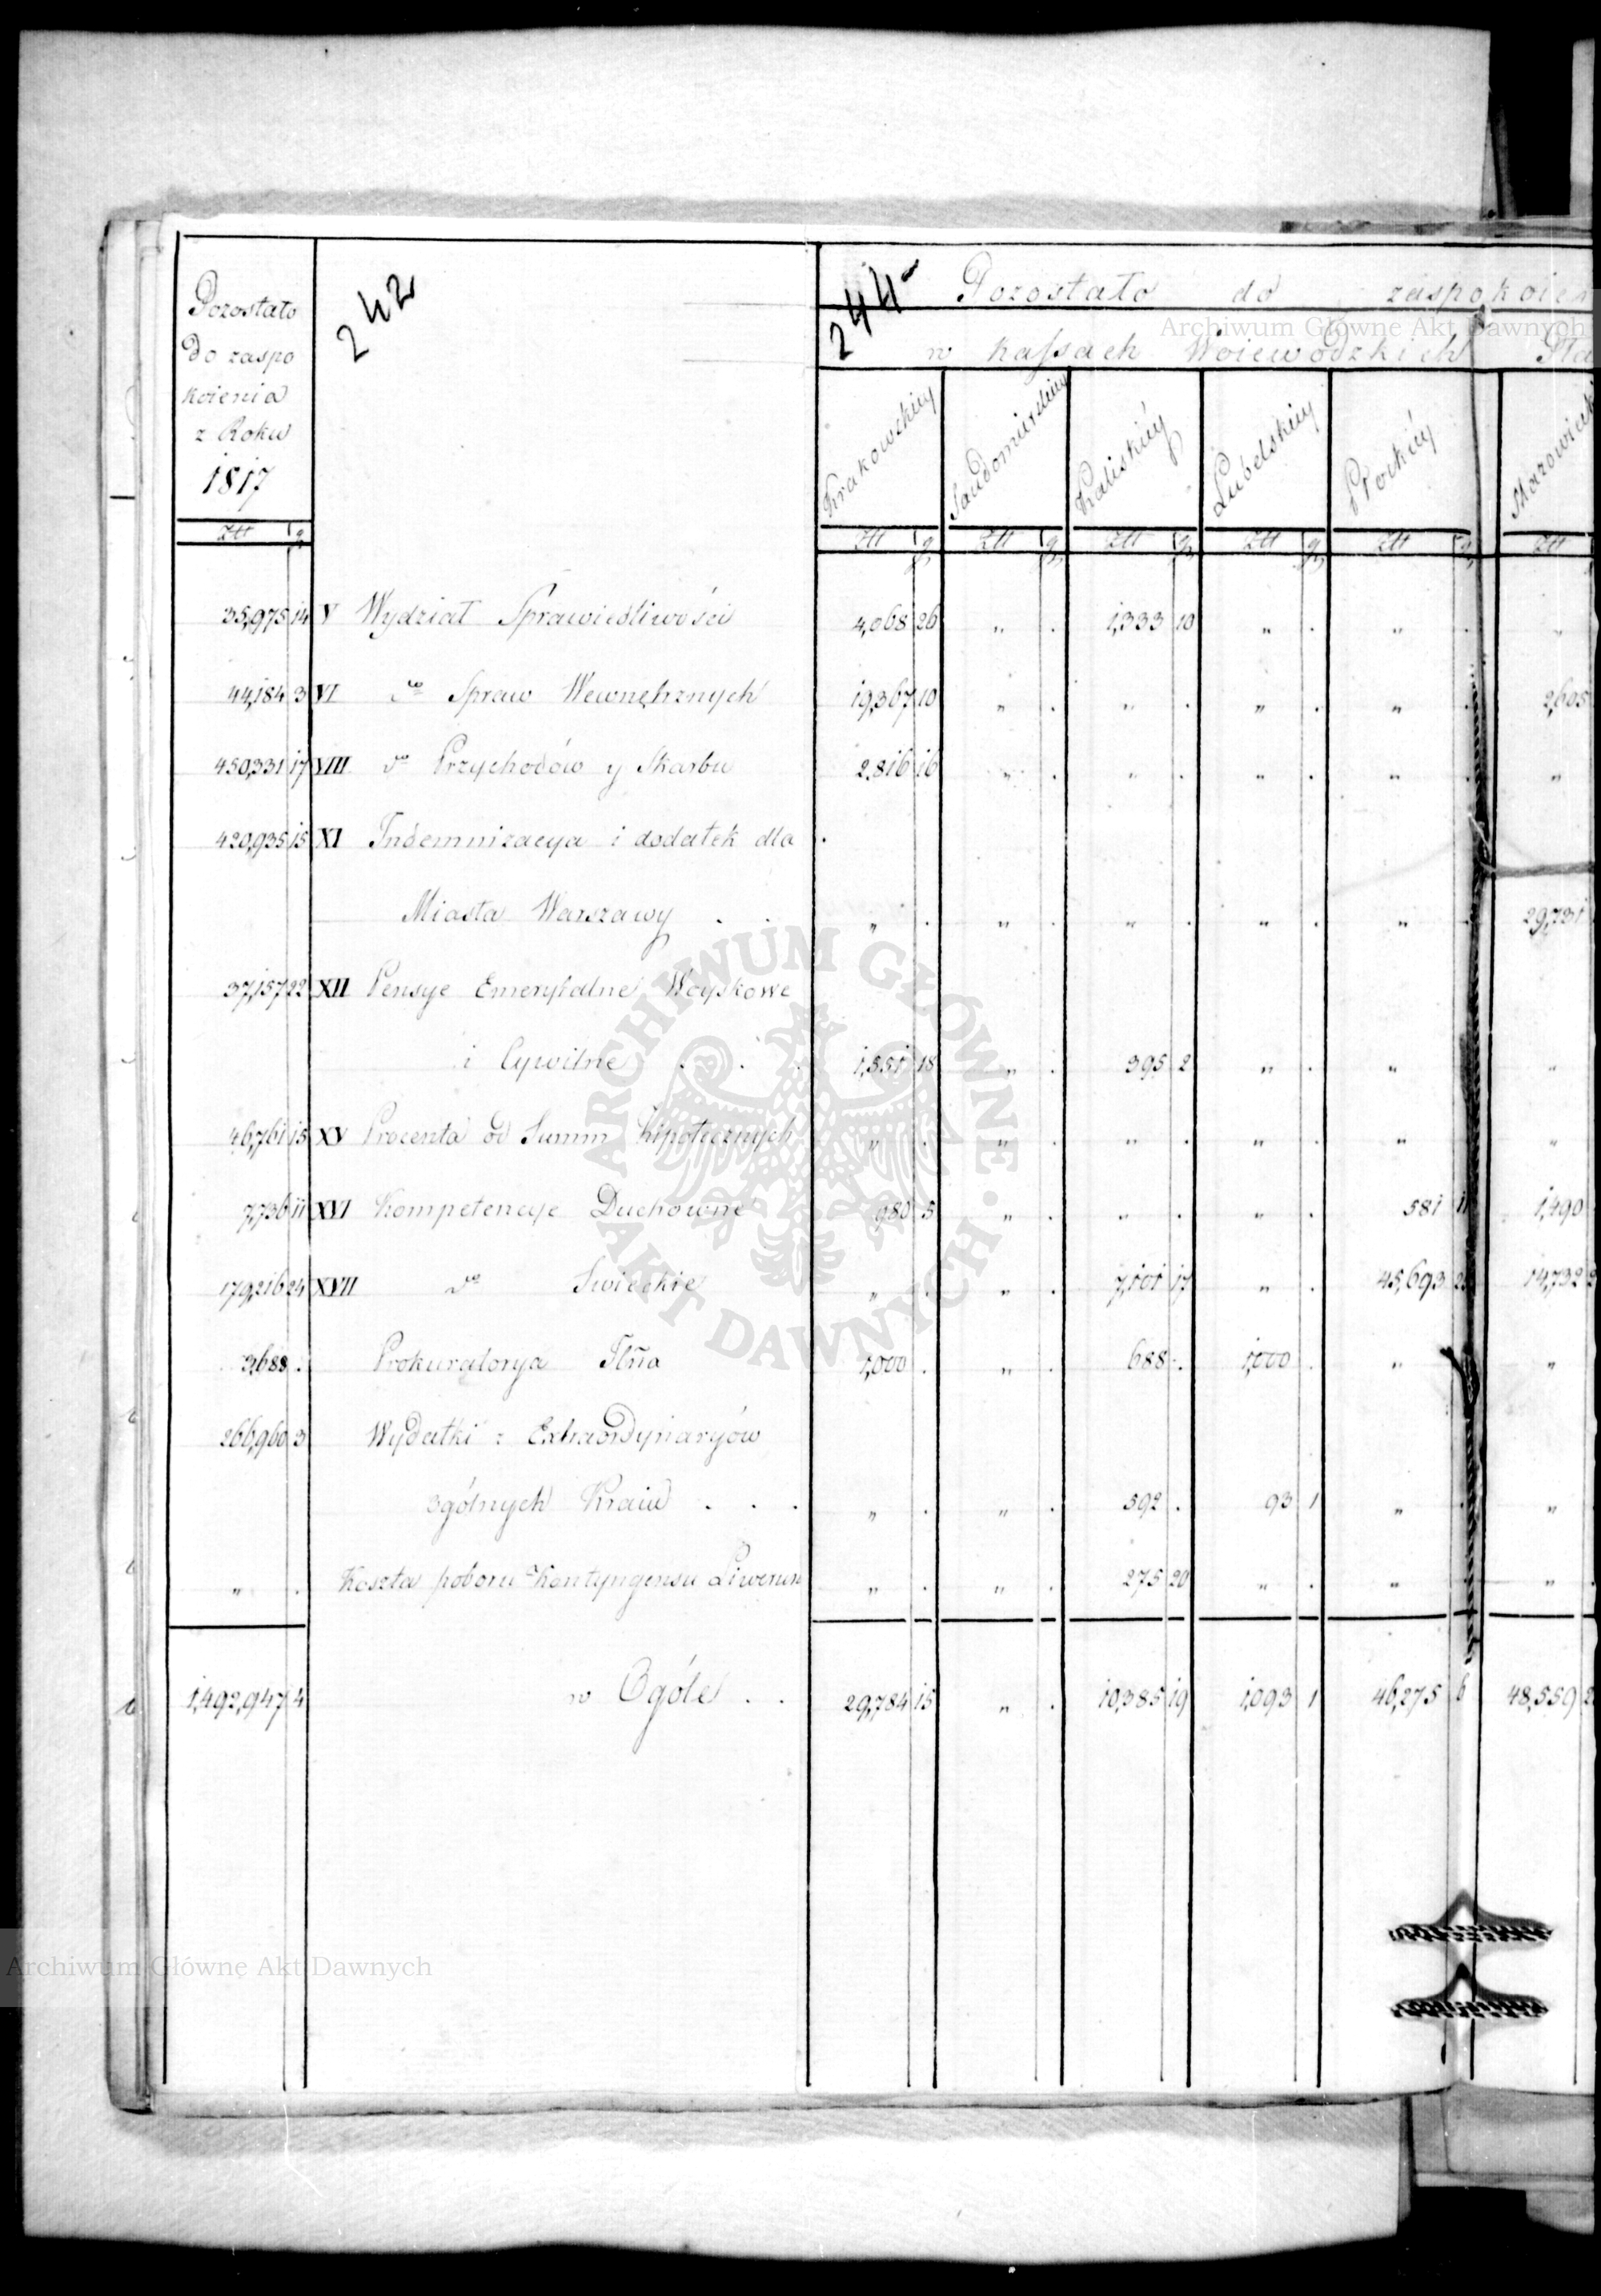 242
244
Pozostało do zaspokoien
w Kassach Woiewodzkich Ma
Pozostało
do zaspo
koienia
z Roku
1817
Krakowskiey Sandomirskiey Kaliskiéy Lubelskiey Płockiéy Mazowieck
Złł gr Złł gr Złł gr Złł gr Złł gr Złł gr Złł
35,975 14 V Wydział Sprawiedliwości 4,068 26 „ . 1,333 10 „ . „ . „
44,184 3 VI do Spraw Wewnętrznych 19,367 10 „ . „ . „ . „ . 2,605
450,331 17 VIII do Przychodów y Skarbu 2,816 16 „ . „ . „ . „ . „
420,935 15 XI Indemnizacya i dodatek dla
Miasta Warszawy . . „ . „ . „ . „ . „ . 29,731
37,157 22 XII Pensye Emerytalne Woyskowe
i Cywilne . . . 1,551 18 „ . 395 2 „ . „ „
46,761 15 XV Procenta od Summ Hipotecznych „ . „ . „ . „ . „ „
7,736 11 XVI Kompetencye Duchowne 980 5 „ . „ . „ . 581 11 1,490
179,216 24 XVII do Swieckie „ . „ . 7,101 17 „ . 45,693 14,732
3,688 . Prokuratorya 1,000 . „ . 688 . 1,000 . „ „
266,960 3 Wydatki z Extraordynaryów
ogólnych Kraiu . . . „ . „ . 592 . 93 1 „ . „
„ . Koszta poboru Kontyngensu Liwerun „ . „ . 275 20 „ . „ „ .
1,492,947 4 w Ogóle . . 29,784 15 „ . 10,385 19 1,093 1 46,275 6 48,559
Archiwum Główne Akt Dawnych
ARCHIWUM GŁÓWNE AKT DAWNYCH
Archiwum Główne Akt Dawnych